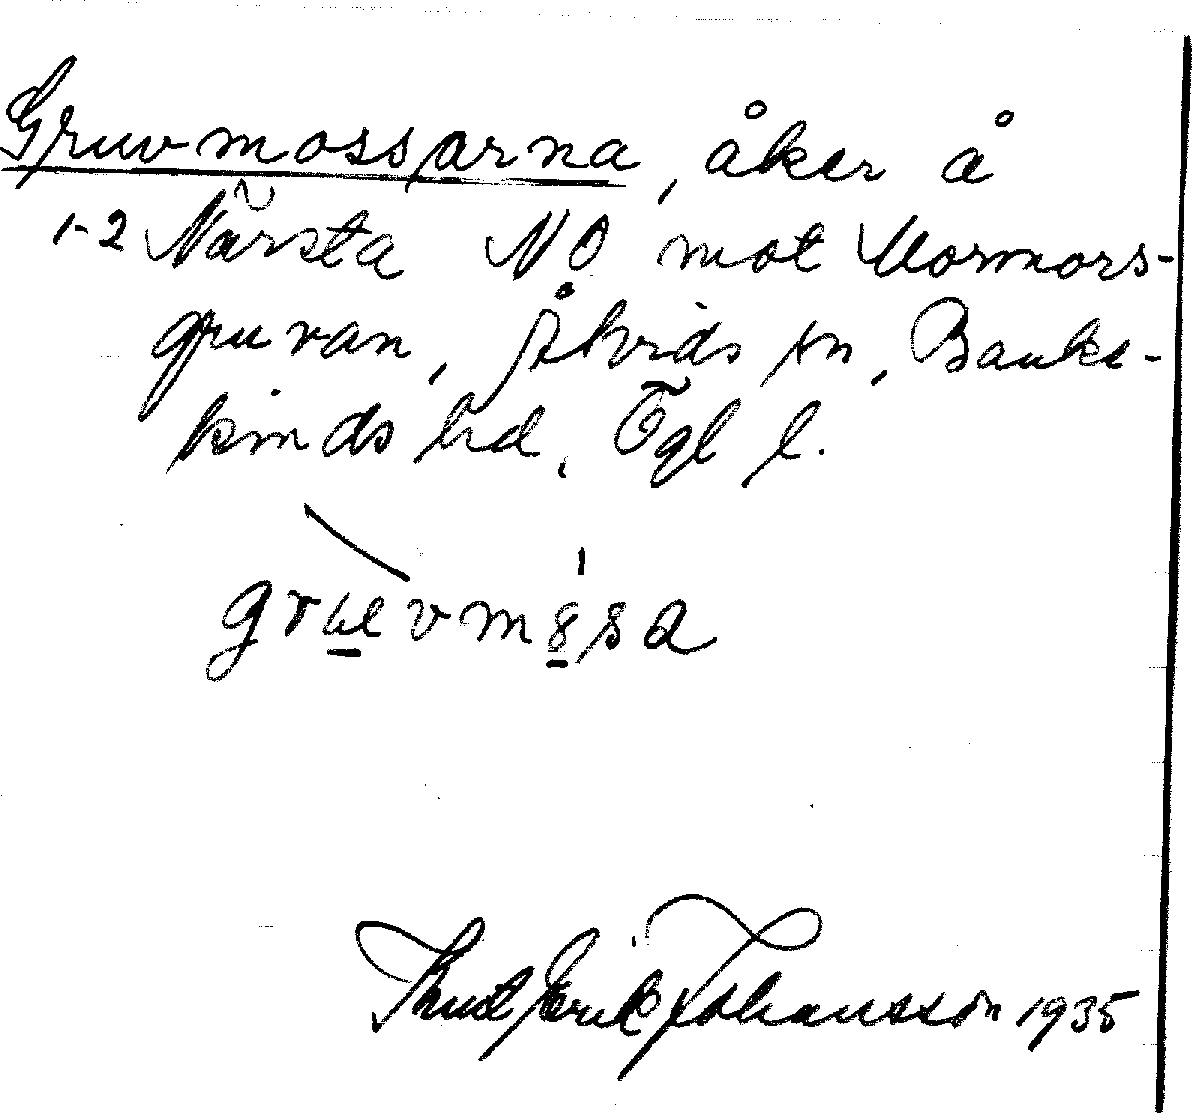 Gruvmossarna, åker å
1-2 Närsta NO mot Mormors-
gruvan, Åtvids sn, Banke-
kinds hd, Ögl l.
Knut Erik Johansson 1935